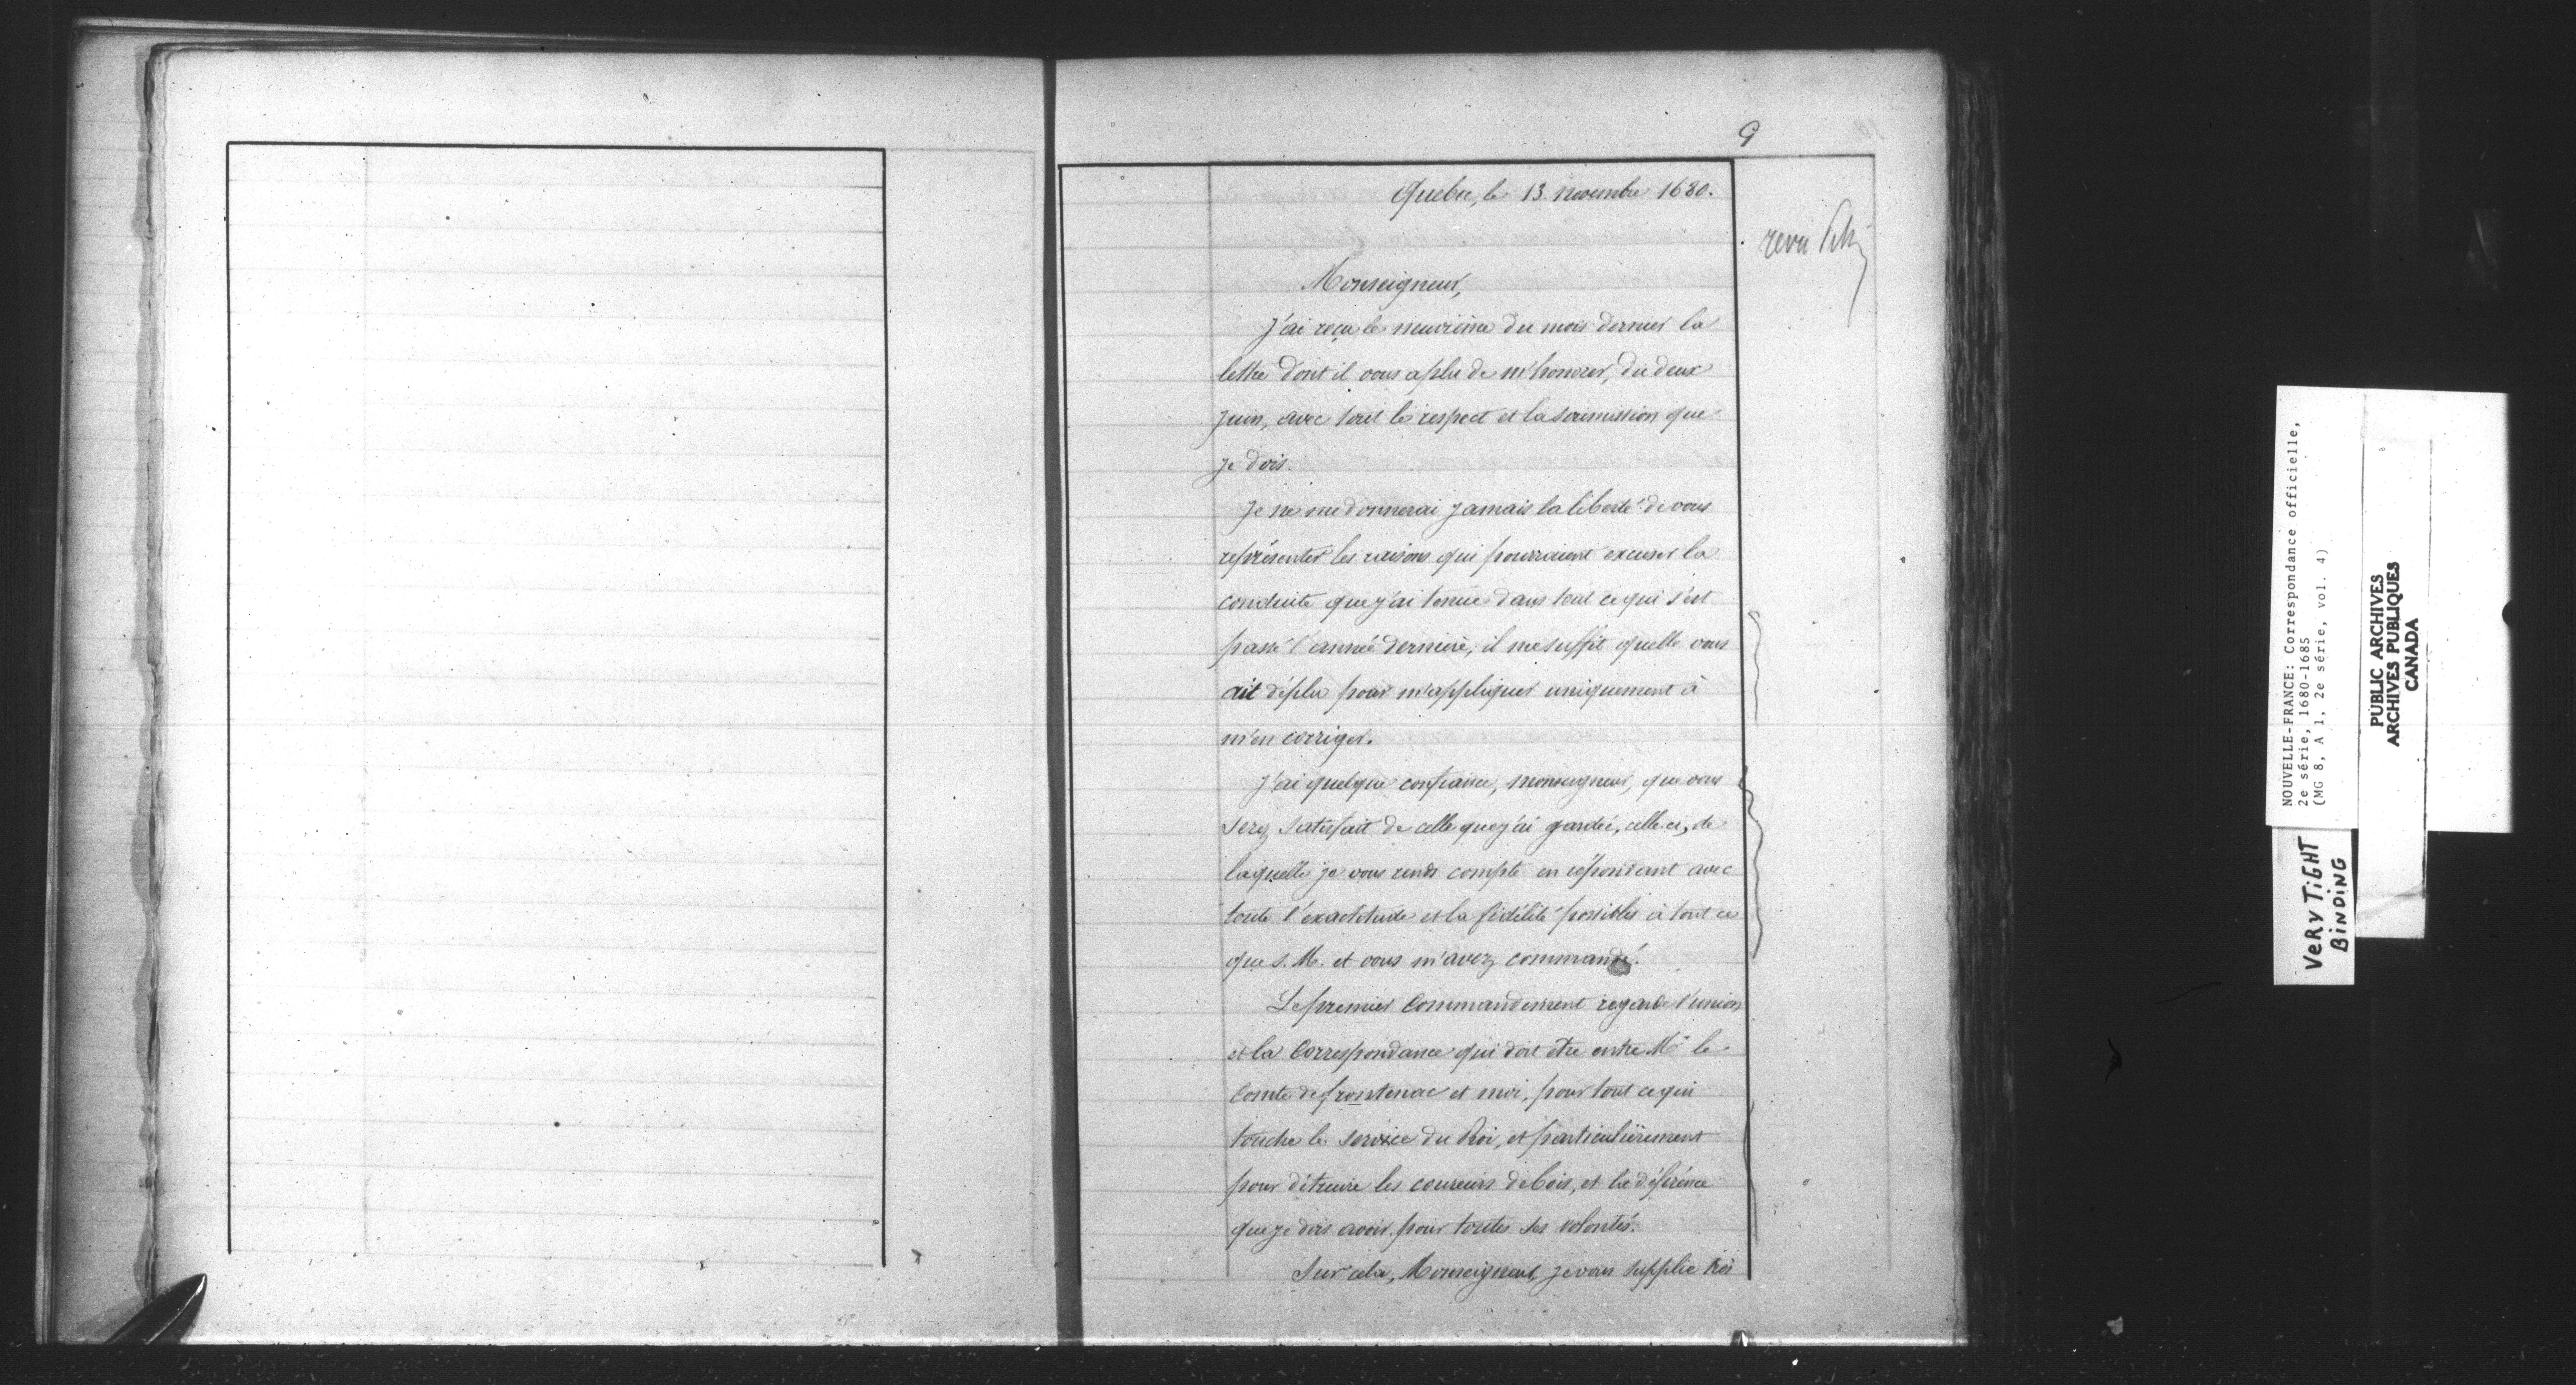 9
Quebec, le 13 novembre 1680.
revu
Monseigneur,
J'ai reçu le neuvième du mois dernier la
lettre dont il vous a plu de m'honorer, du deux
juin, avec tout le respect et la soumission que
je dois.
Je ne me donnerai jamais la liberté de vous
représenter les raisons qui pourraient excuser la
conduite que j'ai tenue dans tout ce qui s'est
passé l'année dernière, il me suffit quelle vous
ait déplu pour m'appliquer uniquement à
m'en corriger.
J'ai quelque confiance, monseigneur, que vous
serez satisfait de celle que j'ai gardée, celle-ci, de
laquelle je vous rends compte en répondant avec
toute l'exactitude et la fidélité possibles à tout ce
que S. M. et vous m'avez commandé.
Le premier Commandement regarde l'union
et la Correspondance qui doit être entre Mr le
Comte de frontenac et moi, pour tout ce qui
touche le service du Roi, et particulièrement
pour détruire les coureurs de bois, et la déférence
que je dois avoir pour toutes ses volontés.
Sur cela, Monseigneur, je vous supplie très
NOUVELLE-FRANCE: Correspondance officielle,
2e série, 1680-1685
(MG 8, A 1, 2e série, vol. 4)
PUBLIC ARCHIVES
ARCHIVES PUBLIQUES
CANADA
VERY TIGHT
BINDING